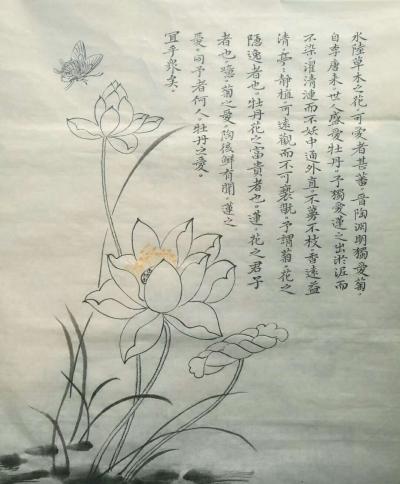 水陸草木之花。可愛者甚蕃。晋陶淵明獨愛菊。
自李唐来。世人盛愛牡丹。予獨愛蓮之出淤泥而
不染。濯清漣而不妖中通外直。不蔓不枝。香遠益
清。亭々靜植。可遠觀而不可褻翫。予謂菊。花之
隱逸者也。牡丹花之富貴者也。蓮。花之君子
者也。噫。菊之愛。陶後鮮有聞。蓮之
愛。同予者何人。牡丹之愛。
宜乎衆矣。